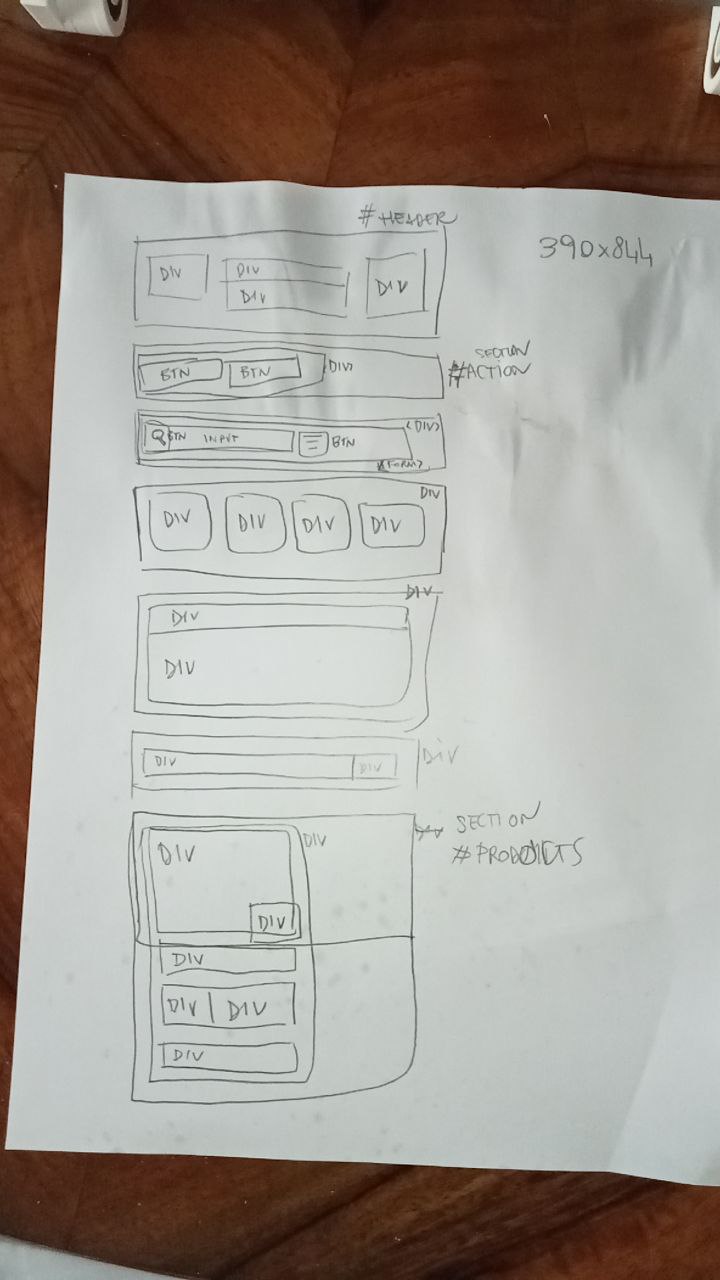 # HEADER
390x844
DIV
DIV
DIV
DIV
SECTION
#ACTION
BTN
BTN
DIV
<DIV>
BTN INPUT
BTN
<FORM>
DIV
DIV
DIV
DIV
DIV
DIV
DIV
DIV
DIV
DIV
DIV
SECTION
#PRODUCTS
DIV
DIV
DIV
DIV
DIV | DIV
DIV